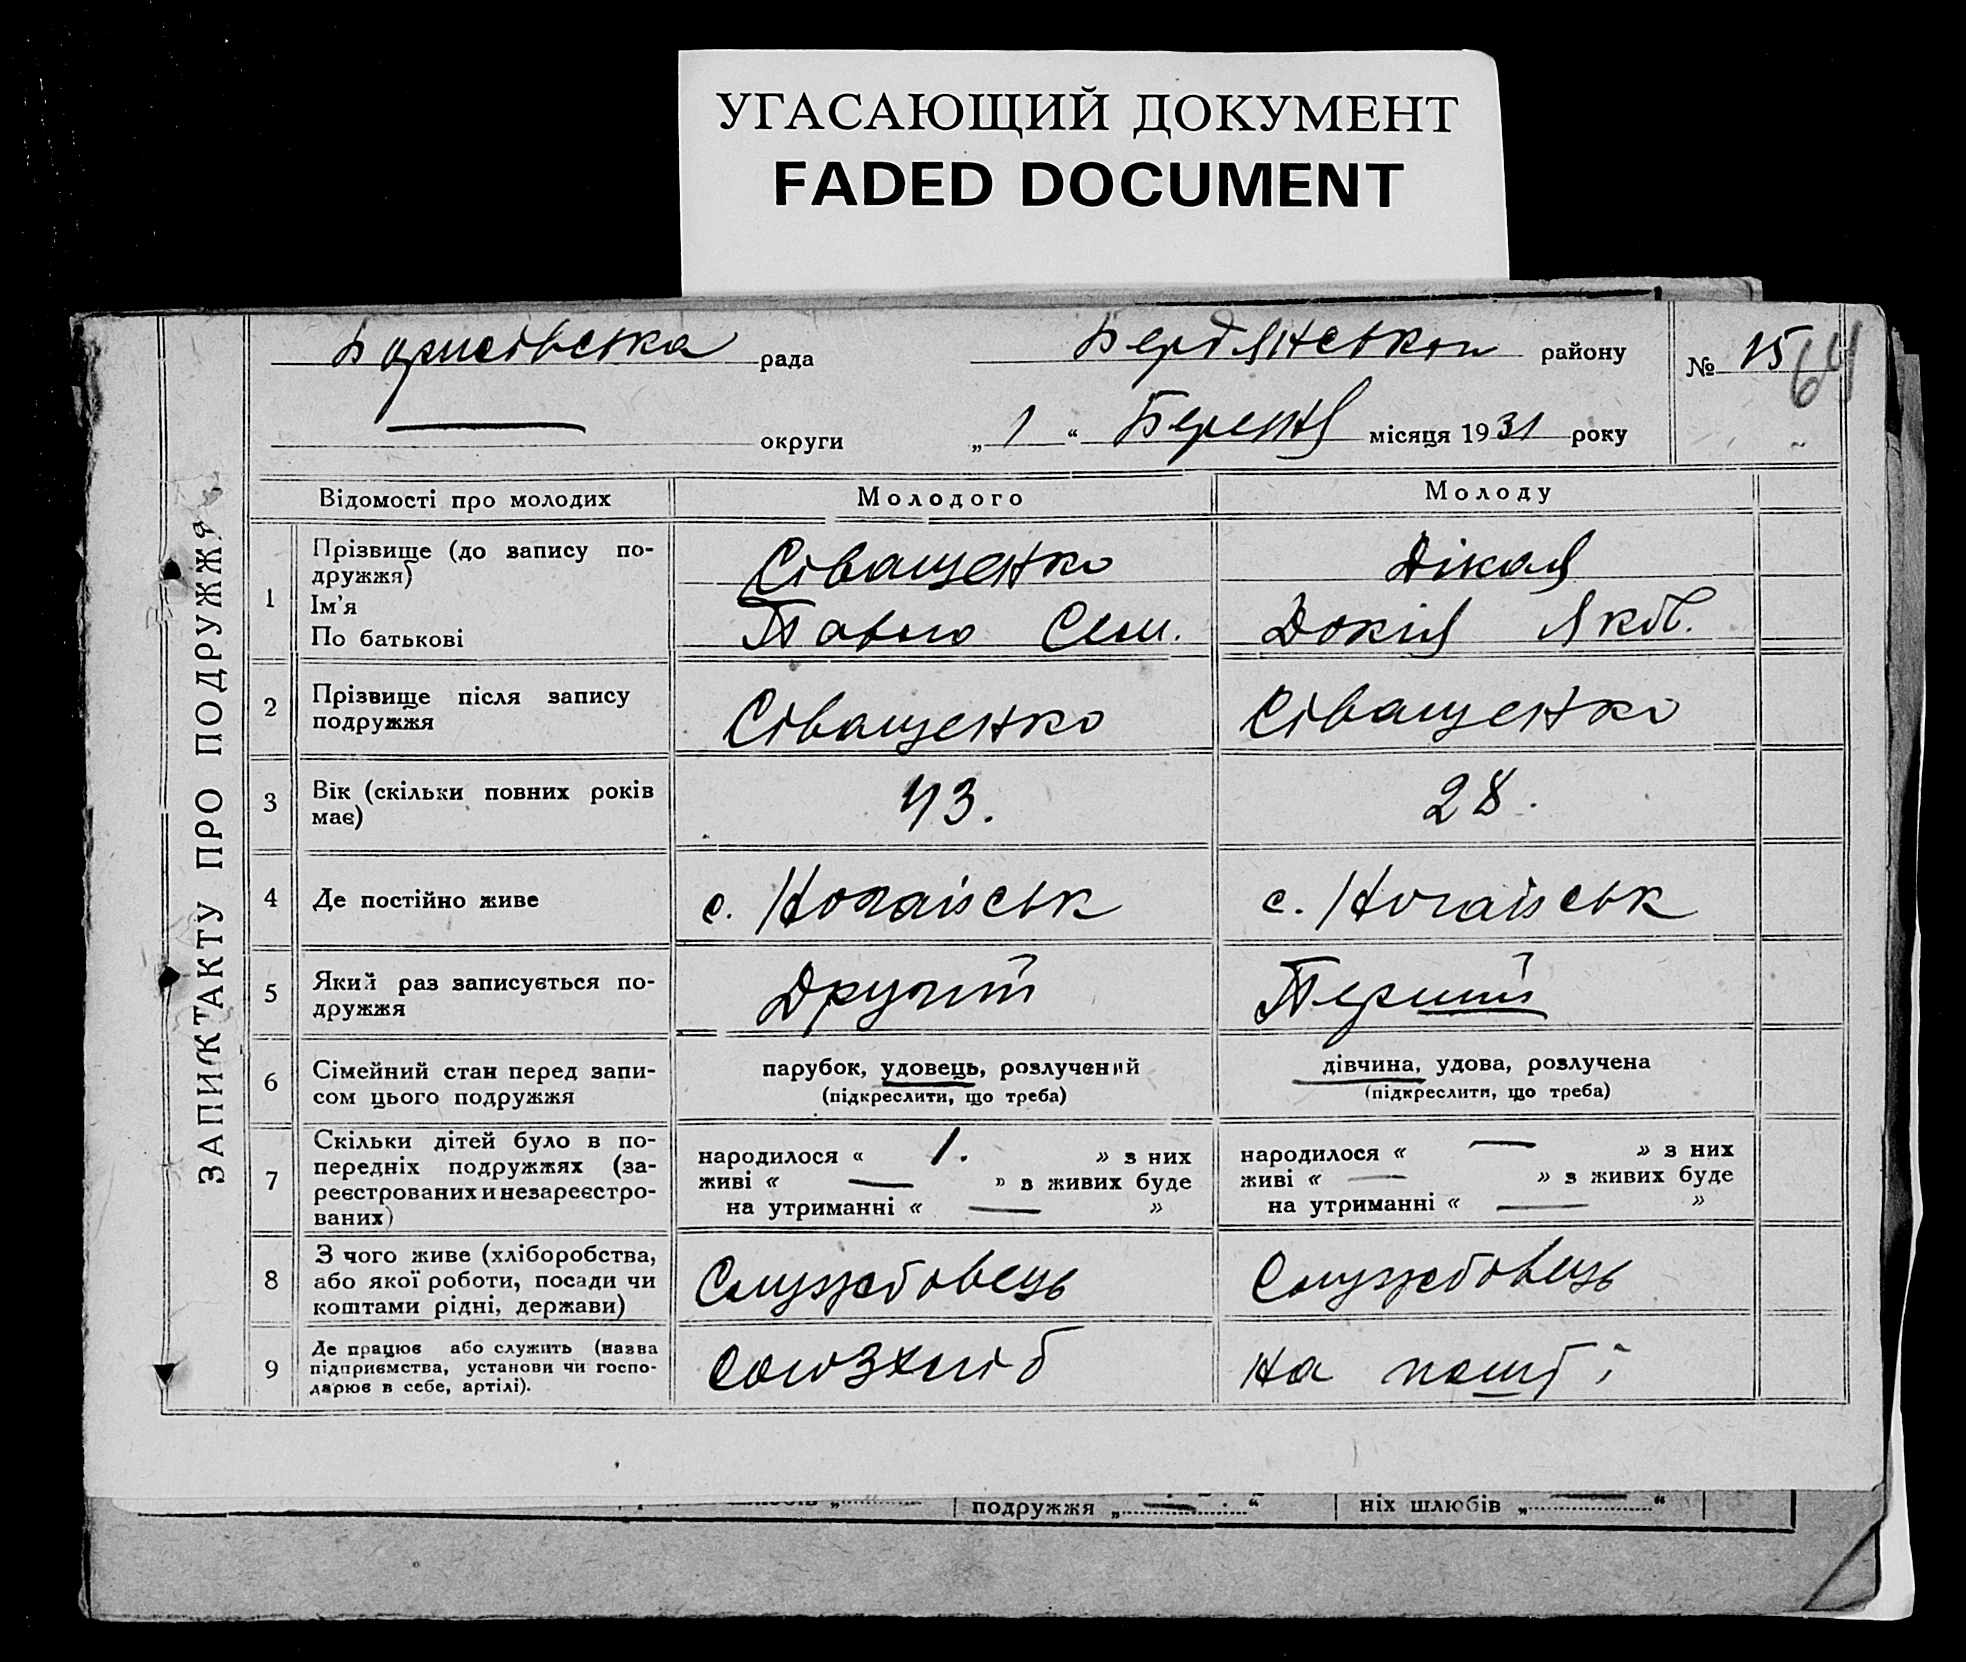 УГАСАЮЩИЙ ДОКУМЕНТ
FADED DOCUMENT
Борисівська рада Бердянського району № 15 64
округи „ 1 “ Березня місяця 1931 року
ЗАПИС АКТУ ПРО ПОДРУЖЖЯ
Відомості про молодих Молодого Молоду
1 Прізвище (до запису по-
дружжя) Сіващенко Дікая
Ім'я
По батькові Павло Сем. Докія Яків.
2 Прізвище після запису
подружжя Сіващенко Сіващенко
3 Вік (скільки повних років
має) 43. 28.
4 Де постійно живе с. Ногайськ с. Ногайськ
5 Який раз записується по-
дружжя Другий Перший
6 Сімейний стан перед запи-
сом цього подружжя
парубок, удовець, розлучений
(підкреслити, що треба)
дівчина, удова, розлучена
(підкреслити, що треба)
7 Скільки дітей було в по-
передніх подружжях (за-
реєстрованих и незареєстро-
ваних)
народилося « 1. » з них
живі « — » в живих буде
на утриманні « — »
народилося « — » з них
живі « — » з живих буде
на утриманні « — »
8 З чого живе (хліборобства,
або якої роботи, посади чи
коштами рідні, держави)
Службовець Службовець
9 Де працює або служить (назва
підприємства, установи чи госпо-
дарює в себе, артілі).
Союзхліб на пошті
подружжя „ — “ ніх шлюбів „ — “